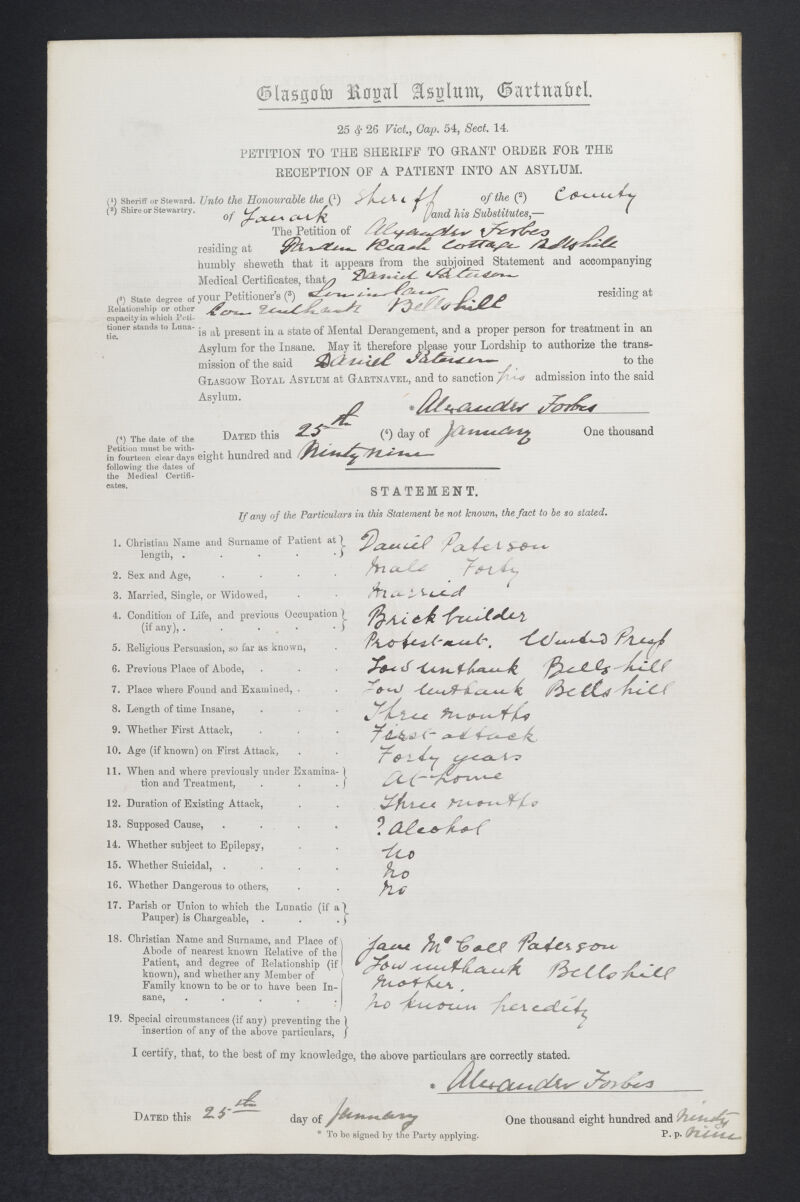 Glasgow Royal Asylum, Gartnavel.
25 & 26 Vict., Cap. 54, Sect. 14.
PETITION TO THE SHERIFF TO GRANT ORDER FOR THE
RECEPTION OF A PATIENT INTO AN ASYLUM.
(1) Sheriff or Steward.
(2) Shire or Stewartry.
Unto the Honourable the (1) Sheriff of the (2) County
of Lanark and his Substitutes,—
The Petition of Alexander Forbes
residing at Cottage Bellshill
humbly sheweth that it appears from the subjoined Statement and accompanying
Medical Certificates, that Daniel Paterson
(3) State degree of
Relationship or other
capacity in which Peti-
tioner stands to Luna-
tic.
your Petitioner's (3) Son in law residing at
Low Unthank Bellshill
is at present in a state of Mental Derangement, and a proper person for treatment in an
Asylum for the Insane. May it therefore please your Lordship to authorize the trans-
mission of the said Daniel Paterson to the
GLASGOW ROYAL ASYLUM AT GARTNAVEL, and to sanction his admission into the said
Asylum.
* Alexander Forbes
(4) The date of the
Petition must be with-
in fourteen clear days
following the dates of
the Medical Certifi-
cates.
DATED this 25th (4) day of January One thousand
eight hundred and Ninty nine
STATEMENT.
If any of the Particulars in this Statement be not known, the fact to be so stated.
1. Christian Name and Surname of Patient at
length, . . . . . Daniel Paterson
2. Sex and Age, . . . . Male Forty
3. Married, Single, or Widowed, . . Married
4. Condition of Life, and previous Occupation
(if any), . . . . . Brick builder
5. Religious Persuasion, so far as known, . Protestant. United Presb
6. Previous Place of Abode, . . . Low Unthank Bellshill
7. Place where Found and Examined, . . Low Unthank Bellshill
8. Length of time Insane, . . . Three months
9. Whether First Attack, . . . First attack
10. Age (if known) on First Attack, . . Forty years
11. When and where previously under Examina-
tion and Treatment, . . . At home
12. Duration of Existing Attack, . . Three months
13. Supposed Cause, . . . . ? Alcohol
14. Whether subject to Epilepsy, . . No
15. Whether Suicidal, . . . . No
16. Whether Dangerous to others, . . No
17. Parish or Union to which the Lunatic (if a
Pauper) is Chargeable, . . .
18. Christian Name and Surname, and Place of
Abode of nearest known Relative of the
Patient, and degree of Relationship (if
known), and whether any Member of
Family known to be or to have been In-
sane, . . . . . .
Jane McCall Paterson
Low unthank Bellshill
Mother.
No known heredity
19. Special circumstances (if any) preventing the
insertion of any of the above particulars,
I certify, that, to the best of my knowledge, the above particulars are correctly stated.
* Alexander Forbes
DATED this 25th day of January One thousand eight hundred and Ninty
nine
* To be signed by the Party applying.
P. p.